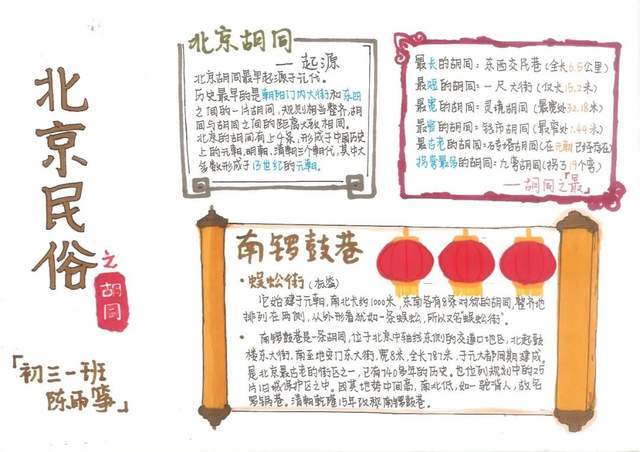 北京民俗
之
胡同
「初三一班
北京胡同
——起源
北京胡同最早起源于元代。
历史最早的是朝阳门内大街和东四
之间的一片胡同，规则相当整齐，胡
同与胡同之间的距离大致相同。
北京的胡同有上千条，形成于中国历史
上的元朝、明朝、清朝三个朝代，其中大
多数形成于13世纪的元朝。
最长的胡同：东西交民巷（全长6.5公里）
最短的胡同：一尺大街（仅长15.2米）
最宽的胡同：灵境胡同（最宽处32.18米）
最窄的胡同：钱市胡同（最窄处0.44米）
最古老的胡同：
拐弯最多的胡同：九弯胡同（拐了19个弯）
——胡同之「最」
南锣鼓巷
·蜈蚣街
它始建于元朝，南北长约1000米，东南各有8条对称的胡同，整齐地
排列在两侧，从外形看犹如一条蜈蚣，所以又名蜈蚣街。
·南锣鼓巷是一条胡同，位于北京中轴线东侧的交道口地区，北起鼓
楼东大街，南至地安门东大街，宽8米，全长787米，于元大都同期建成。
是北京最古老的街区之一，已有740多年的历史。也位列规划中的25
片旧城保护区之中。因其地势中间高，南北低，如一驼背人，故名
罗锅巷。清朝乾隆15年改称南锣鼓巷。